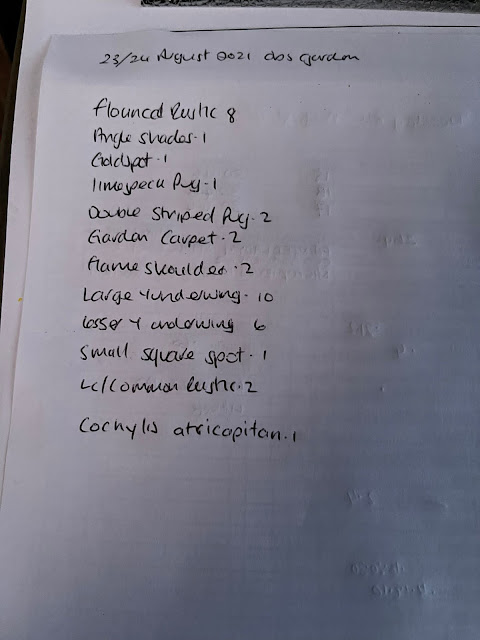 23/24 August 2021 obs garden
Flounced Rustic 8
Angle shades.1
Goldspot.1
limespeck Pug.1
Double Striped Pug.2
Garden Carpet.2
flame shoulder.2
Large Yunderwing.10
lesser Yunderwing 6
Small square spot.1
Lc/Common Rustic.2
Cochylis atricapitan.1